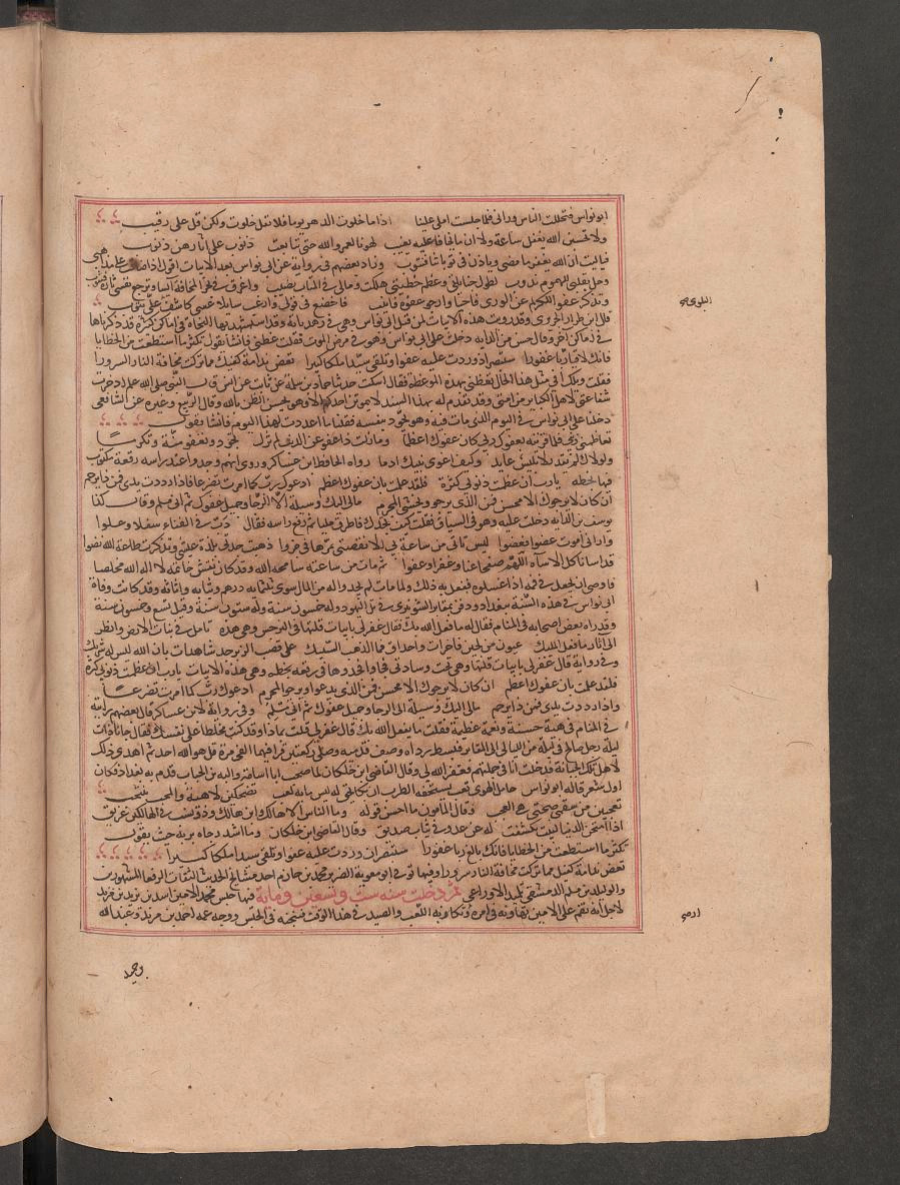 ابو نواس فتخلت الناس وراني فلما جلست املى علينا اذا ما خلوت الدهر يوما فلا تقل خلوت ولكن قل علي رقيب
ولا تحسبن الله يغفل ساعة ولا ان ما يخفا عليه يغيب لهونا لعمر والله حتى تتابعت ذنوب على اثارهن ذنوب
فياليت ان الله يغفر ما مضى وياذن في توباتنا فنتوب وزاد بعضهم في رواية عن ابي نواس بعد الابيات اقول اذا ضاقت علي مذاهبي
وحل بقلبي للهموم ندوب لطول جناياتي وعظم خطيتي هلكت ومالي في المتاب نصيب
وتذكر عفو الكريم عن الورى فاحيا وارجو عفوه فانيب فاخضع في قولي وارغب سايلا عسى كاشف علي يتوب
في اماكن آخر وقال حسن بن الدايه دخلت على ابي نواس وهو في مرض الموت فقلت عظني فانشا يقول تكثر ما استطعت من الخطايا
فانك لاقيا ربا غفورا ستبصر اذ وردت عليه عفوا وتلقى سيدا ملكا كبيرا تعض ندامة كفيك مما تركت مخافة النار السرورا
فقلت ويلك افي مثل هذا الحال تعظني بهذه الموعظة فقال اسكت حدثنا حماد بن سلمة عن ثابت عن انس قال النبي صلى الله عليه ادخرت
شفاعتي لاهل الكبائر من امتي وقد تقدم له بهذا السند لا يموتن احدكم الا وهو يحسن الظن بالله وقال الربيع وغيره عن الشافعي
دخلنا على ابي نواس في اليوم الذي مات فيه وهو يجود بنفسه فقلنا ما اعددت لهذا اليوم فانشا يقول
تعاظمني ذنبي فلما قرنته بعفوك ربي كان عفوك اعظما ومازلت ذا عفو عن الذنب لم تزل تجود وتعفو منة وتكرما
ولولاك لم يقدر لابليس عابد وكيف اغوى نبيك ادما رواه الحافظ ابن عساكر وروى انهم وجدوا عند راسه رقعة مكتوب
فيها بخطه يا رب ان عظمت ذنوبي كثرة فلقد علمت بان عفوك اعظم ادعوك رب كما امرت تضرعا فاذا رددت يدي فمن ذا يرحم
ان كان لا يرجوك الا محسن فمن الذي يرجو ويخشى المجرم مالي اليك وسيلة الا الرجا وجميل عفوك ثم اني مسلم وقال كذا
يوسف بن الدايه دخلت عليه وهو في السياق فقلت كيف تجدك فاطرق مليا ثم رفع راسه فقال دب في الفناء سفلا وعلوا
واراني اموت عضوا فعضوا ليس تاتي من ساعة بي الا نقصتني بمرها في جزوا ذهبت جدتي بلذة عيشي وتذكرت طاعة الله نضوا
قد اسانا كل الاساة اللهم صفحا عنا وغفرا وعفوا ثم مات من ساعته سامحه الله وقد كان نقش خاتمه لا اله الا الله مخلصا
فاوصى ان يجعل في فمه اذا غسلوه ففعل به ذلك ولما مات لم يجدوا له من المال سوى ثلثمايه درهم وثيابه واثاثه وقد كانت وفاة
ابي نواس في هذه السنة ببغداد ودفن بمقابر الشونيزي في تل اليهود وله خمسون سنة وقيل ستون سنة وقيل تسع وخمسون سنة
وقد راه بعض اصحابه في المنام فقال له ما فعل الله بك فقال غفر لي بابيات قلتها في النرجس وهي هذه تامل في نبات الارض وانظر
الى اثار ما فعل المليك عيون من لجين فاخرات واحداق كما الذهب السبيك على قضب الزبرجد شاهدات بان الله ليس له شريك
وفي رواية قال غفر لي بابيات قلتها وهي تحت وسادتي فجاوا فوجدوها في رقعه بخطه وهي هذه الابيات يا رب ان عظمت ذنوبي كثرة
فلقد علمت بان عفوك اعظم ان كان لا يرجوك الا محسن فمن الذي يدعو ويرجو المجرم ادعوك رب كما امرت تضرعا
واذا رددت يدي فمن ذا يرحم مالي اليك وسيلة الا الرجا وجميل عفوك ثم اني مسلم وفي رواية لابن عساكر قال بعضهم رايته
في المنام في هيئة حسنة ونعمة عظيمة فقلت ما فعل الله بك قال غفر لي قلت بماذا وقد كنت مخلطا على نفسك فقال جا ذات
ليلة رجل صالح الى المقابر فبسط رداه وصف قدميه وصلى ركعتين قرا فيهما الفي مرة قل هو الله احد ثم اهدى ذلك
لاهل تلك الجبانة فدخلت انا في جملتهم فغفر الله لي وقال القاضي ابن خلكان لما صحب ابا اسامة والبه بن الحباب قدم به بغداد فكان
اول شعر قاله ابو نواس حامل الهوى تعب يستخفه الطرب ان بكا يحق له ليس ما به لعب تضحكين لاهية والمحب ينتحب
تعجبين من سقمي صحتي هي العجب وقال المامون ما احسن قوله وما الناس الا هالك وابن هالك وذو نسب في الهالكين عريق
اذا امتحن الدنيا لبيب تكشفت له عن عدو في ثياب صديق وقال القاضي ابن خلكان وما اشد رجاه بربه حيث يقول
تكثر ما استطعت من الخطايا فانك بالغ ربا غفورا ستبصر ان وردت عليه عفوا وتلقى سيدا ملكا كبيرا
تعض ندامة كفيك مما تركت مخافة النار سرورا وفيها توفي ابو معوية الضرير محمد بن خازم احد مشايخ الحديث الثقات الرفعا المشهورين
والوليد بن مسلم الدمشقي تلميذ الاوزاعي ثم دخلت سنه ست وتسعين ومايه فيها حبس محمد الامين اسد بن يزيد بن مزيد
لاجل انه نقم على الامين تهاونه في امره وتكاونه اللعب والصيد في هذا الوقت فسجنه في الحبس ووجه عمه احمد بن مزيد وعبد الله